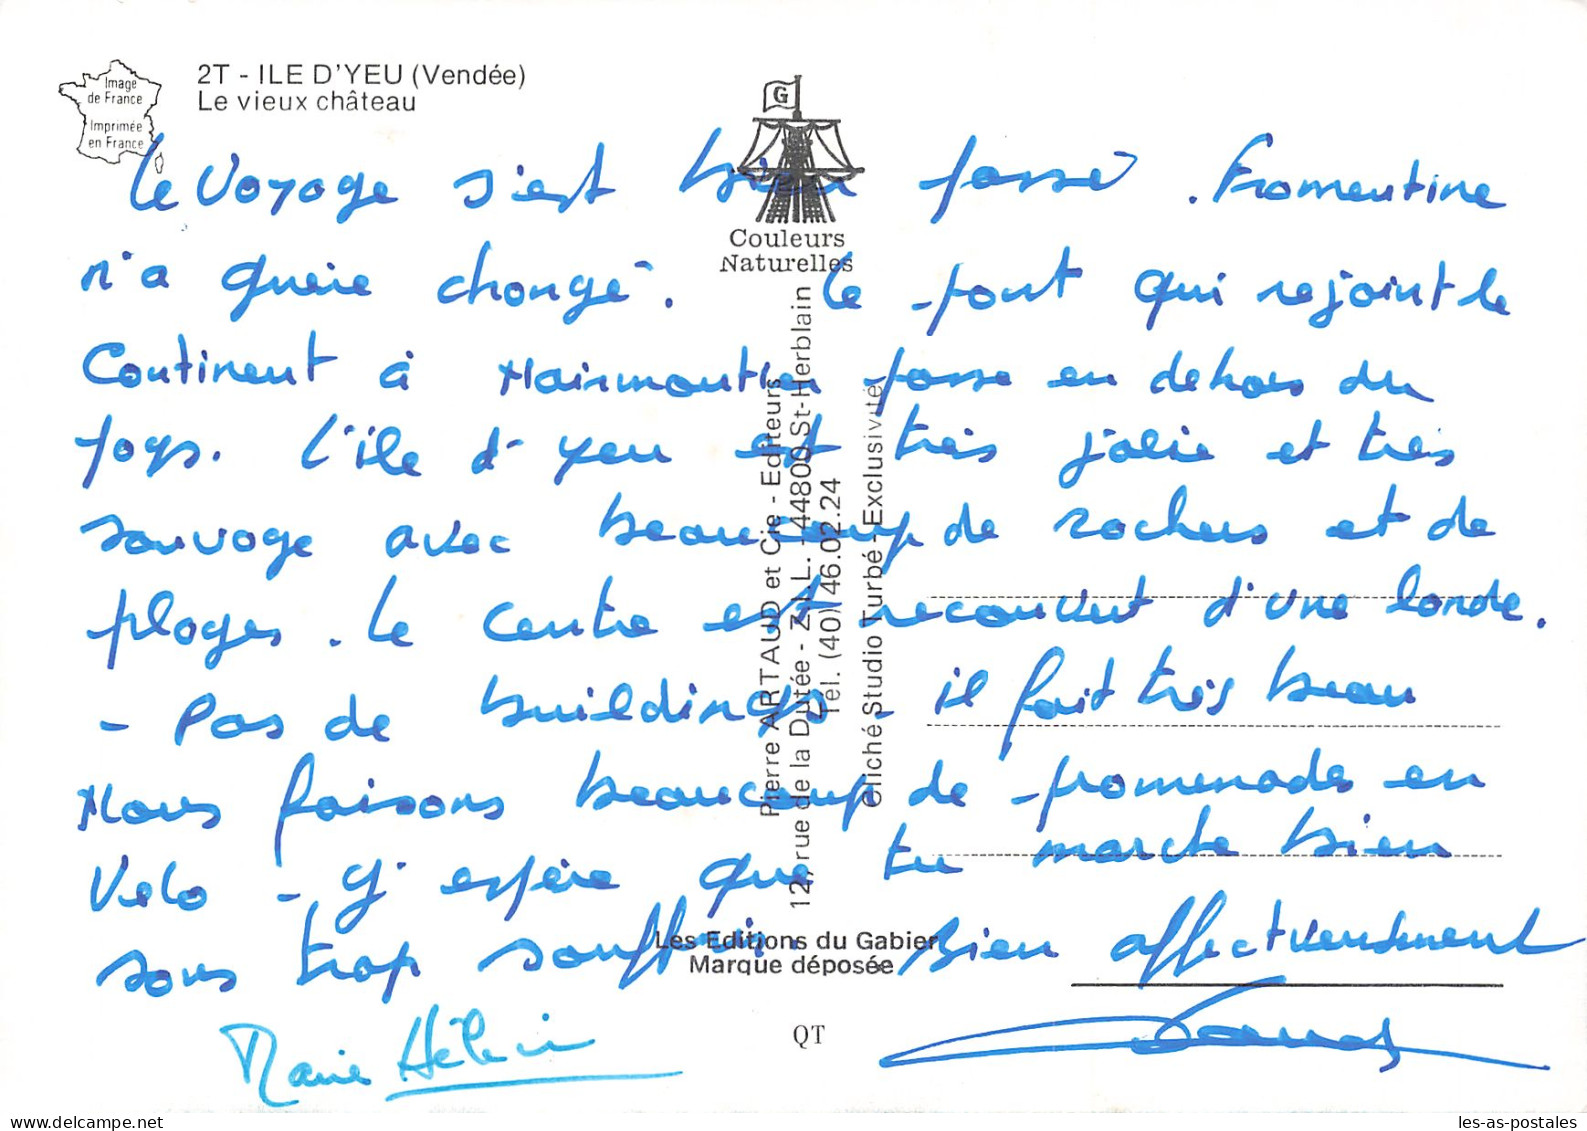 Image
de France
Imprimée
en France
2T - ILE D'YEU (Vendée)
Le vieux château
G
Couleurs
Naturelles
Le voyage s'est bien passé. Fromentine
n'a guère changé. Le pont qui rejoint le
Continent à Noirmoutier passe en dehors du
pays. L'île d'yeu est très jolie et très
sauvage avec beaucoup de rochers et de
plages. Le centre est recouvert d'une lande.
- Pas de buildings - il fait très beau
Nous faisons beaucoup de promenades en
Vélo - J'espère que tu marche bien
sans trop souffrir. Bien affectueusement
Marie Hélène
Pierre ARTAUD et Cie - Editeurs
12, rue de la Dutée - Z.I.L. - 44800 St-Herblain
Tél. (40) 46.02.24
Cliché Studio Turbé - Exclusivité
Les Editions du Gabier
Marque déposée
QT
delcampe.net
les-as-postales